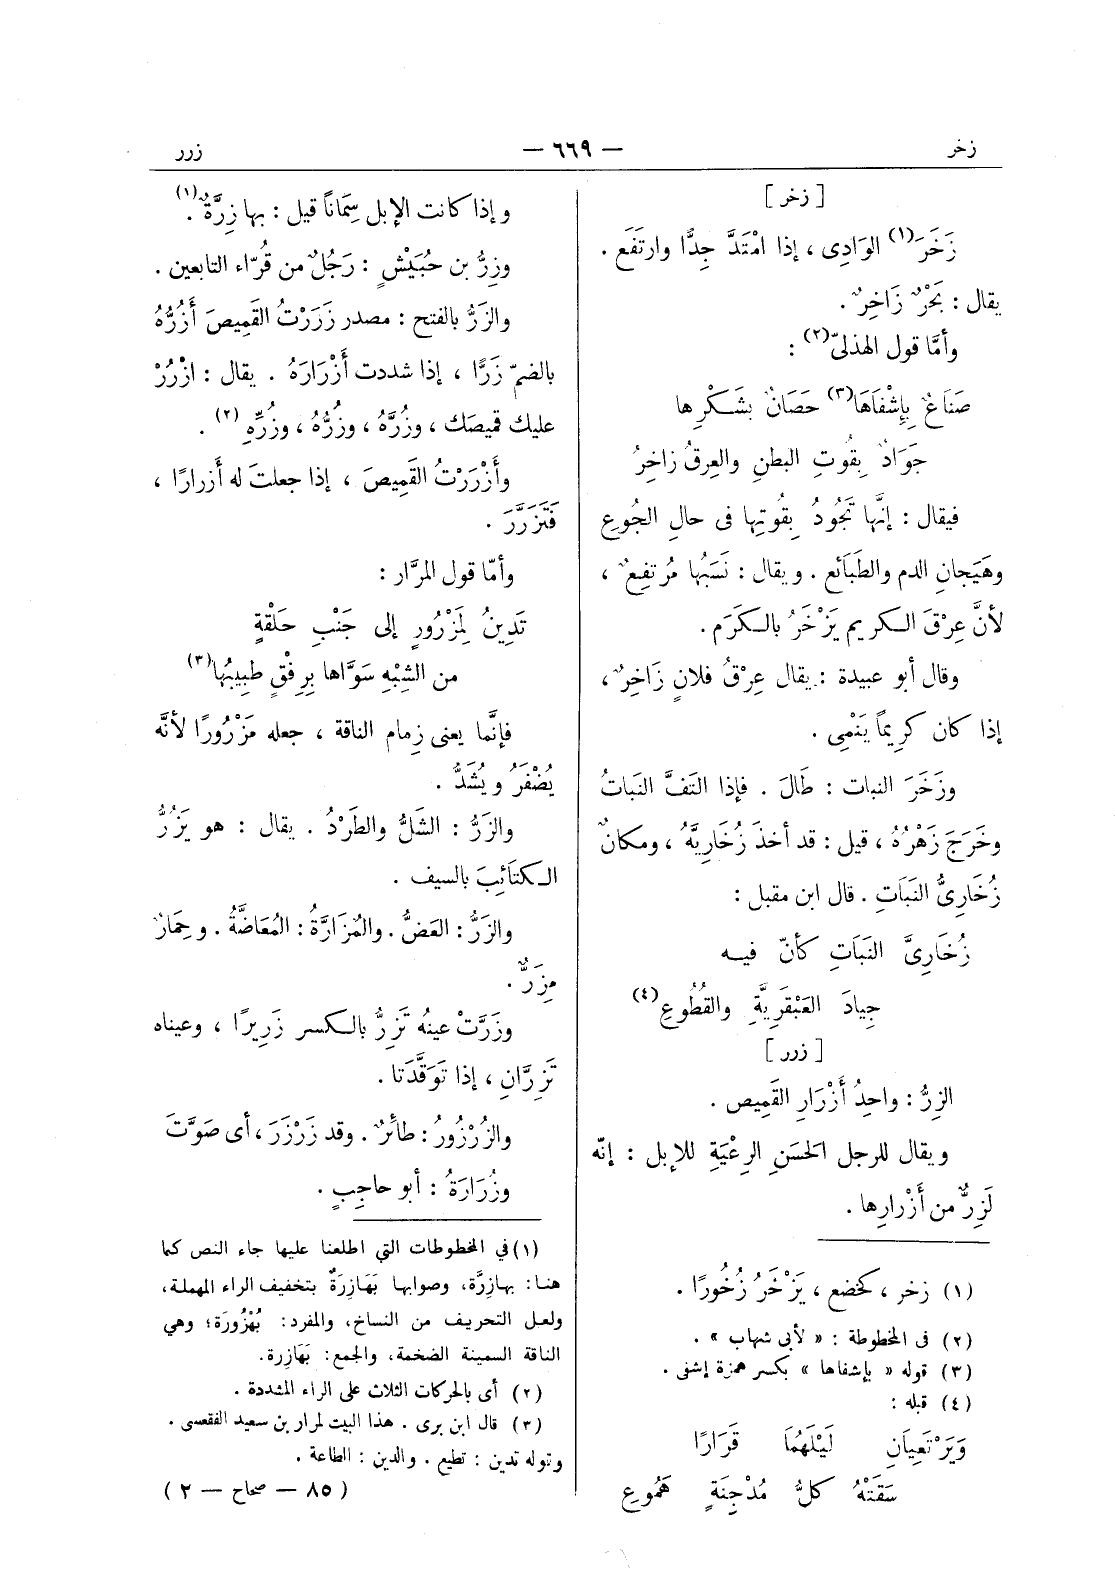 زخر
— ٦٦٩ —
زرر
[ زخر ]
زَخَرَ(١) الوَادِى ، إذا امْتَدَّ جِدًّا وارتَفَع .
يقال : بَحْرٌ زَاخِرٌ .
وأمَّا قول الهذلىّ(٢) :
صَنَاعٌ بِإِشْفَاهَا(٣) حَصَانٌ بشَكْرِها
جَوَادٌ بِقُوتِ البطنِ والعِرقُ زاخِرُ
فيقال : إنَّها تَجُودُ بِقُوتِها فى حالِ الجُوعِ
وهَيَجانِ الدم والطَبَائع . ويقال : نَسَبُها مُرتفِعٌ ،
لأنَّ عِرْقَ الكريم يَزْخَرُ بالكَرَم .
وقال أبو عبيدة : يقال عِرْقُ فلانٍ زَاخِرٌ ،
إذا كان كريماً يَنْمِى .
وزَخَرَ النبات : طَالَ . فإذا التَفَّ النَباتُ
وخَرَجَ زَهْرُهُ ، قيل : قد أخذَ زُخَارِيَّهُ ، ومكانٌ
زُخَارِىُّ النَبَاتِ . قال ابن مقبل :
زُخَارِىَّ النَبَاتِ كأنّ فيه
جِيادَ العَبْقَرِيَّةِ والقُطُوعِ(٤)
[ زرر ]
الزِرُّ : واحِدُ أَزْرَارِ القَمِيص .
ويقال للرجل الحَسَنِ الرِعْيَةِ للابل : إنّه
لَزِرٌّ من أَزْرارِها .
(١) زخر ، كخضع ، يَزْخَرُ زُخُورًا .
(٢) فى المخطوطة : « لأبى شهاب » .
(٣) قوله « بإشفاها » بكسر همزة إشفى .
(٤) قبله :
وَيَرْتَعِيَانِ لَيْلَهُمَا قَرَارًا
سَقَتْهُ كلُّ مُدْجِنَةٍ هَمُوعِ
وإذا كانت الإبل سِمَاناً قيل : بها زِرَّةٌ(١) .
وزِرُّ بن حُبَيْشٍ : رَجُلٌ من قُرّاء التابعين .
والزَرُّ بالفتح : مصدر زَرَرْتُ القَمِيصَ أَزُرُّهُ
بالضمّ زَرًّا ، إذا شددت أَزْرَارَهُ . يقال : ازْرُرْ
عليك قميصَك ، وزُرَّهُ ، وزُرُّهُ ، وزُرِّهِ(٢) .
وأَزْرَرْتُ القَمِيصَ ، إذا جعلتَ له أزرارًا ،
فَتَزَرَّرَ .
وأمّا قول المرَّار :
تَدِينُ لِمَزْرُورٍ إلى جَنْبِ حَلْقةٍ
من الشِبْهِ سَوَّاها بِرِفْقٍ طبيبُها(٣)
فإنَّما يعنى زِمام الناقة ، جعله مَزْرُورًا لأنَّه
يُضْفَرُ ويُشَدُّ .
والزَرُّ : الشَلُّ والطَرْدُ . يقال : هو يَزُرُّ
الكتائِبَ بالسيف .
والزَرُّ : العَضُّ . والمُزَارَّةُ : المُعَاضَّةُ . وحِمارٌ
مِزَرٌّ .
وزَرَّتْ عينهُ تَزِرُّ بالكسر زَرِيرًا ، وعيناه
تَزِرَّانِ ، إذا تَوَقَّدَتا .
والزُرْزُورُ : طائرٌ . وقد زَرْزَرَ ، أى صَوَّتَ
وزُرَارَةُ : أبو حاجِبٍ .
(١) في المخطوطات التي اطلعنا عليها جاء النص كما
هنا: بهازِرَّة، وصوابها بَهَازِرَةٌ بتخفيف الراء المهملة،
ولعل التحريف من النساخ، والمفرد: بُهْزُورَة؛ وهي
الناقة السمينة الضخمة، والجمع: بَهَازِرة.
(٢) أى بالحركات الثلاث على الراء المشددة .
(٣) قال ابن برى . هذا البيت لمرار بن سعيد الفقعسى .
وقوله تدين : تطيع . والدين : الطاعة .
( ٨٥ — صحاح — ٢ )